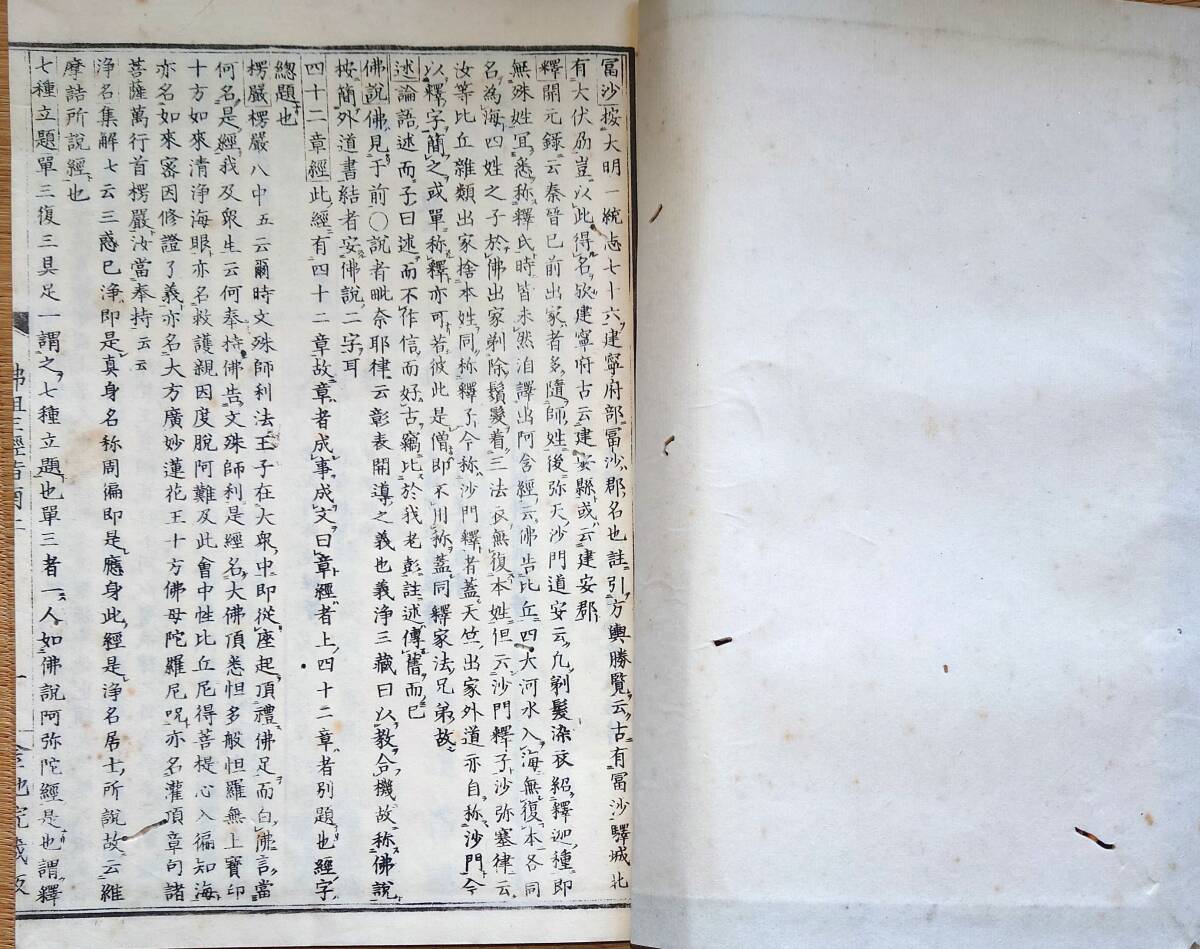 冨沙按大明一統志七十六建寧府部冨沙郡名也註引方輿勝覽云古有冨沙驛城北
有大伏𠛬豈以此得名欤建寧府古云建安縣或云建安郡
釋開元録云秦晉已前出家者多隨師姓後弥天沙門道安云凢剃髮染衣紹釋迦種即
無殊姓冝悉称釋氏時皆未然洎譯出阿含經云佛告比丘四大河水入海無復本各同
名為海四姓之子於佛出家剃除鬚髮着三法衣無復本姓但云沙門釋子沙弥塞律云
汝等比丘雜類出家捨本姓同称釋子今称沙門釋者蓋天竺出家外道亦自称沙門今
以釋字簡之或單称釋亦可若彼此是僧即不用称蓋同釋家法兄弟故
述論語述而子曰述而不作信而好古竊比於我老彭註述傳舊而已
佛說佛見于前〇說者毗奈耶律云彰表開導之義也義浄三藏曰以教合機故称佛說
按簡外道書結者安佛說二字耳
四十二章經此經有四十二章故章者成事成文曰章經者上四十二章者别題也經字
總題也
楞嚴楞嚴八中五云爾時文殊師利法王子在大衆中即從座起頂禮佛足而白佛言當
何名是經我及衆生云何奉持佛告文殊師利是經名大佛頂悉怛多般怛羅無上寳印
十方如來清浄海眼亦名救護親因度脫阿難及此會中性比丘尼得菩提心入徧知海
亦名如來宻因修證了義亦名大方廣妙蓮花王十方佛母陀羅尼呪亦名灌頂章句諸
菩薩萬行首楞嚴汝當奉持云云
浄名集解七云三惑已浄即是真身名称周徧即是應身此經是浄名居士所說故云維
摩詰所說經也
七種立題單三復三具足一謂之七種立題也單三者一人如佛說阿弥陀經是也謂釋
佛祖三經指南上
一
金地院藏板